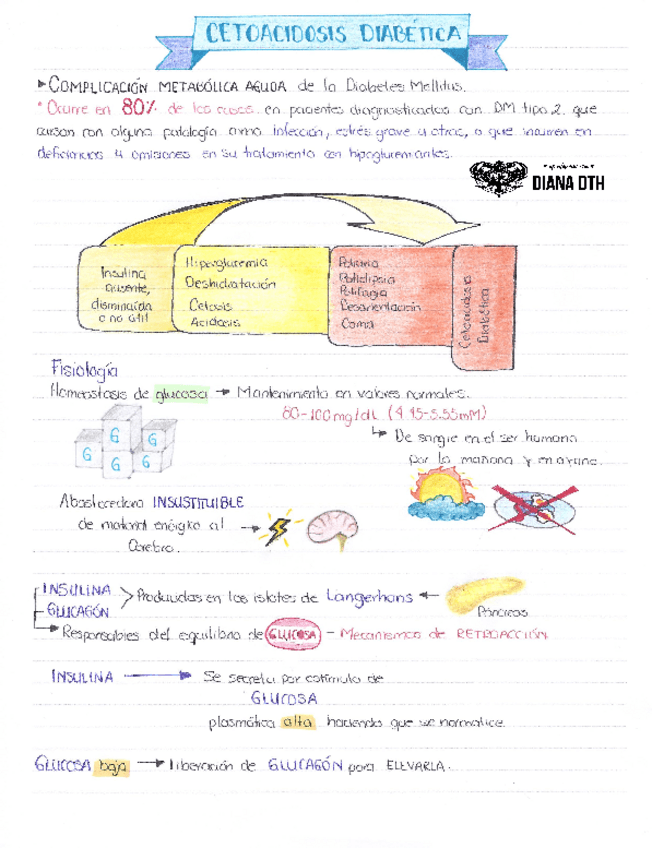 CETOACIDOSIS DIABÉTICA
▸COMPLICACIÓN METABÓLICA AGUDA de la Diabetes Mellitus.
* Ocurre en 80% de los casos en pacientes diagnosticados con DM tipo 2 que
cursan con alguna patología como infección, estrés grave u otras, o que incurren en
deficiencias y omisiones en su tratamiento con hipoglucemiantes.
DIANA DTH
Insulina
ausente,
disminuida
o no útil
Hiperglucemia
Deshidratación
Cetosis
Acidosis
Poliuria
Polidipsia
Polifagia
Desorientación
Coma
Cetoacidosis
Diabética
Fisiología
Homeostasis de glucosa → Mantenimiento en valores normales.
80-100mg/dL (4.45-5.55mM)
↳ De sangre en el ser humano
por la mañana y en ayuno.
G G G G G
Abastecedora INSUSTITUIBLE
de material enérgico al →
Cerebro.
INSULINA
GLUCAGÓN
Producidas en los islotes de Langerhans ←
Páncreas
Responsables del equilibrio de GLUCOSA - Mecanismos de RETROACCIÓN
INSULINA → Se secreta por estímulo de
GLUCOSA
plasmática alta haciendo que se normalice.
GLUCOSA baja → liberación de GLUCAGÓN para ELEVARLA.